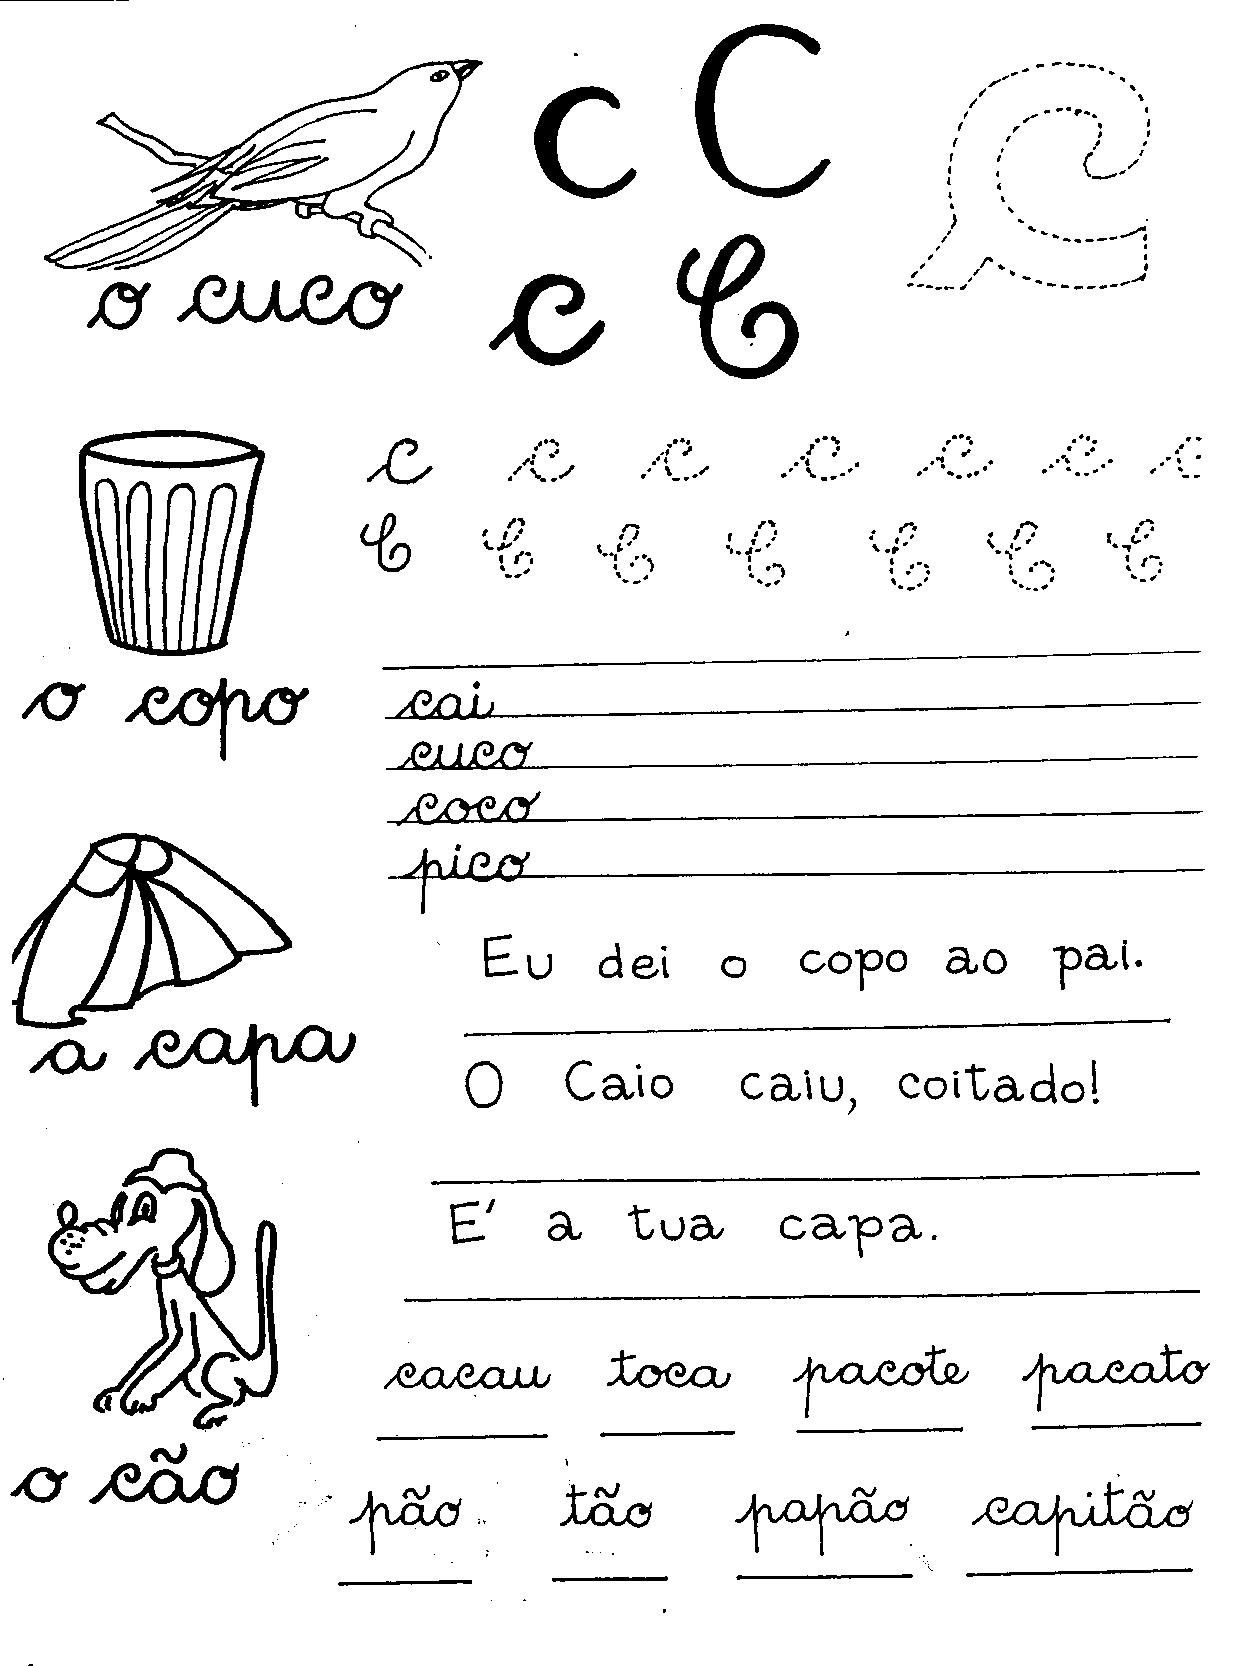 c C
c C
o cuco
c c c c c c c
C C C C C C C
o copo
cai
cuco
coco
pico
a capa
Eu dei o copo ao pai.
O Caio caiu, coitado!
E' a tua capa.
o cão
cacau toca pacote pacato
pão tão papão capitão